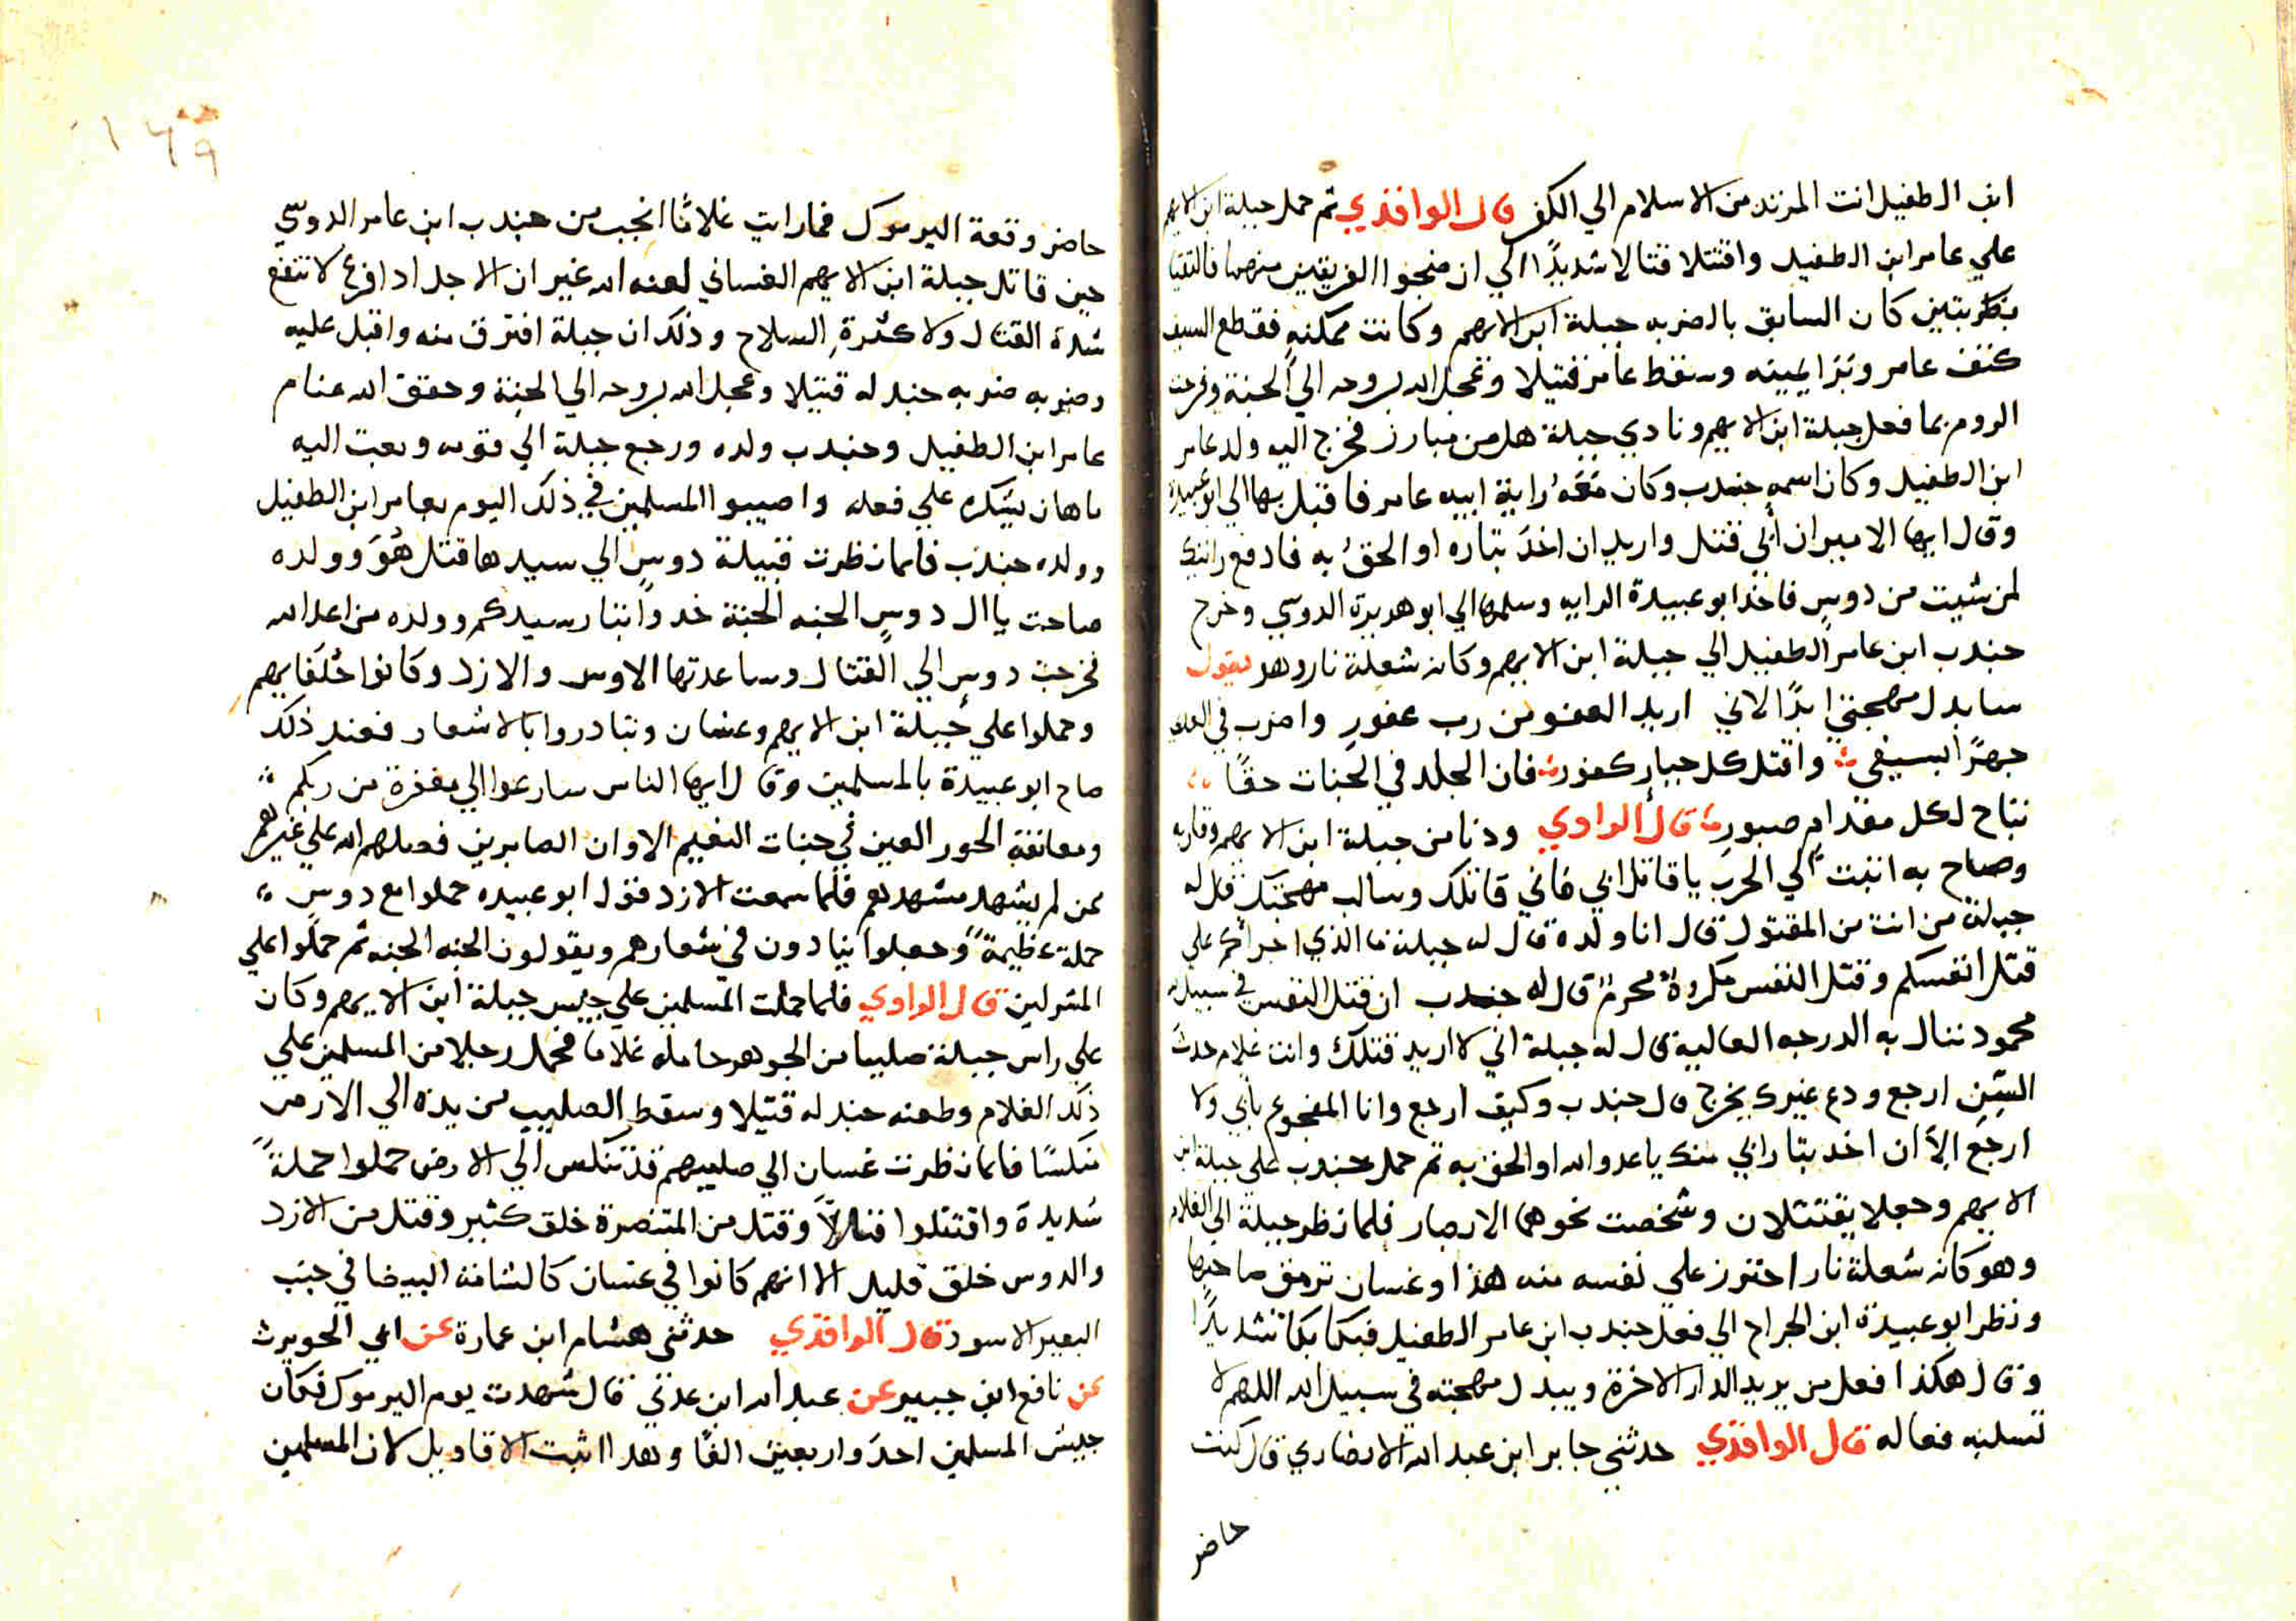 ابن الطفيل انت المرتد من الاسلام الي الكفر قال الواقدي ثم حمل جبلة ابن الايهم
علي عامر ابن الطفيل واقتتلا قتالا شديدًا الي ان ضجوا الفريقين منهما فالتقيا
بضربتين كان السابق بالضربه جبلة ابن الايهم وكانت ممكنه فقطع السيف
كتف عامر وتبرا يمينه وسقط عامر قتيلا وعجل الله بروحه الي الجنة وفرحت
الروم بما فعل جبلة ابن الايهم ونادي جبلة هل من مبارز فخرج اليه ولد عامر
ابن الطفيل وكان اسمه جندب وكان معَهُ راية ابيه عامر فاقبل بها الي ابو عبيدة
وقال ايها الامير ان ابي قتل واريد ان اخذ بتاره او الحقُ به فادفع رايتك
لمن شيت من دوسٍ فاخذ ابو عبيدة الرايه وسلمها الي ابو هريرة الدوسي وخرج
جندب ابن عامر الطفيل الي جبلة ابن الايهم وكانه شعلة نار وهو يقول
سابدل مهجتي ابدًا لاني اريد العفو من رب غفورِ واضرب في العدي
جهرًا بسيفي واقتل كل جبارٍ كفور فان الجلد في الجنات حقًا
تباح لكل مقدامٍ صبورِ قال الراوي ودنا من جبلة ابن الايهم وقاربه
وصاح به اثبت الي الحرب يا قاتل ابي فاني قاتلك وسالب مهجتك قال له
جبلة من انت من المقتول قال انا ولده قال له جبلة ما الذي اجراكم علي
قتل انفسكم وقتل النفس مكروهُ محرمُ قال له جندب ان قتل النفس في سبيل الله
محمود ننال به الدرجه العالية قال له جبلة اني لا اريد قتلك وانت غلام حدث
السِّنِ ارجع ودع غيرك يخرج قال جندب وكيف ارجع وانا المفجوع بابي ولا
ارجع الا ان اخد بتار ابي منك يا عدو الله او الحق به ثم حمل جندب علي جبلة ابن
الايهم وجعلا يقتتلان وشخصت نحوهما الابصار فلما نظر جبلة الي الغلام
وهو كانه شعلة نار احترز علي نفسه منه هذا وغسان ترمق صاحبها
ونظر ابو عبيدة ابن الجراح الي فعل جندب ابن عامر الطفيل فبكا بكاءً شديدًا
وقال هكذا فعل من يريد الدار الاخرة ويبدل مهجته في سبيل الله اللهم لا
تسلبه فعاله قال الواقدي حدثني جابر ابن عبد الله الانصاري قال كنت
حاضر
حاضر وقعة اليرموك فما رايت غلامًا انجب من جندب ابن عامر الدوسي
حين قاتل جبلة ابن الايهم الغساني لعنه الله غير ان الاجل ادا فرع لا تنفع
شدة القتال ولا كثرةِ السلاح وذلك ان جبلة افترق منه واقبل عليه
وضربه ضربه جندله قتيلا وعجل الله بروحه الي الجنة وحقق الله منام
عامر ابن الطفيل وجندب ولده ورجع جبلة الي قومه وبعت اليه
ماهان يشكره علي فعله واصيبوا المسلمين في ذلك اليوم بعامر ابن الطفيل
وولده جندب فلما نظرت قبيلة دوسٍ الي سيدها قتل هُوَ وولده
صاحت يا ال دوسٍ الجنه الجنة خدوا بتار سيدكم وولده من اعدا الله
فخرجت دوس الي القتال وساعدتها الاوس والازد وكانوا حُلَفايهم
وحملوا علي جبلة ابن الايهم وغسان وتبادروا بالاشعار فعند ذلك
صاح ابو عبيدة بالمسلمين وقال ايها الناس سارعوا الي مغفرة من ربكم
ومعانقة الحور العين في جنات النعيم الا وان الصابرين فضلهم الله علي غيرهم
ممن لم يشهد مشهدهم فلما سمعت الازد قول ابو عبيده حملوا مع دوسٍ
حملة عظيمةً وجعلوا ينادون في شعارهم ويقولون الجنه الجنه ثم حملوا علي
المشركين قال الراوي فلما حملت المسلمين علي جيس جبلة ابن الايهم وكان
علي راس جبلة صليبا من الجوهر حامله غلاما فحمل رجلا من المسلمين علي
ذلك الغلام وطعنه جندله قتيلا وسقط الصليب من يده الي الارض
مَنكسًا فلما نظرت غسان الي صليبهم قد تنكس الي الارض حملوا حملةً
شديدة واقتتلوا قتالاً وقتل من المتنصرة خلق كثير وقتل من الازد
والدوس خلق قليل الا انهم كانوا في غسان كالشامة البيضا في جنب
البعير الاسود قال الواقدي حدثني هشام ابن عمارة عن ابي الحويرث
عن نافع ابن جبير عن عبد الله ابن عدني قال شهدت يوم اليرموك فكان
جيش المسلمين احدَ واربعين الفًا وهدا اثبت الاقاويل لان المسلمين